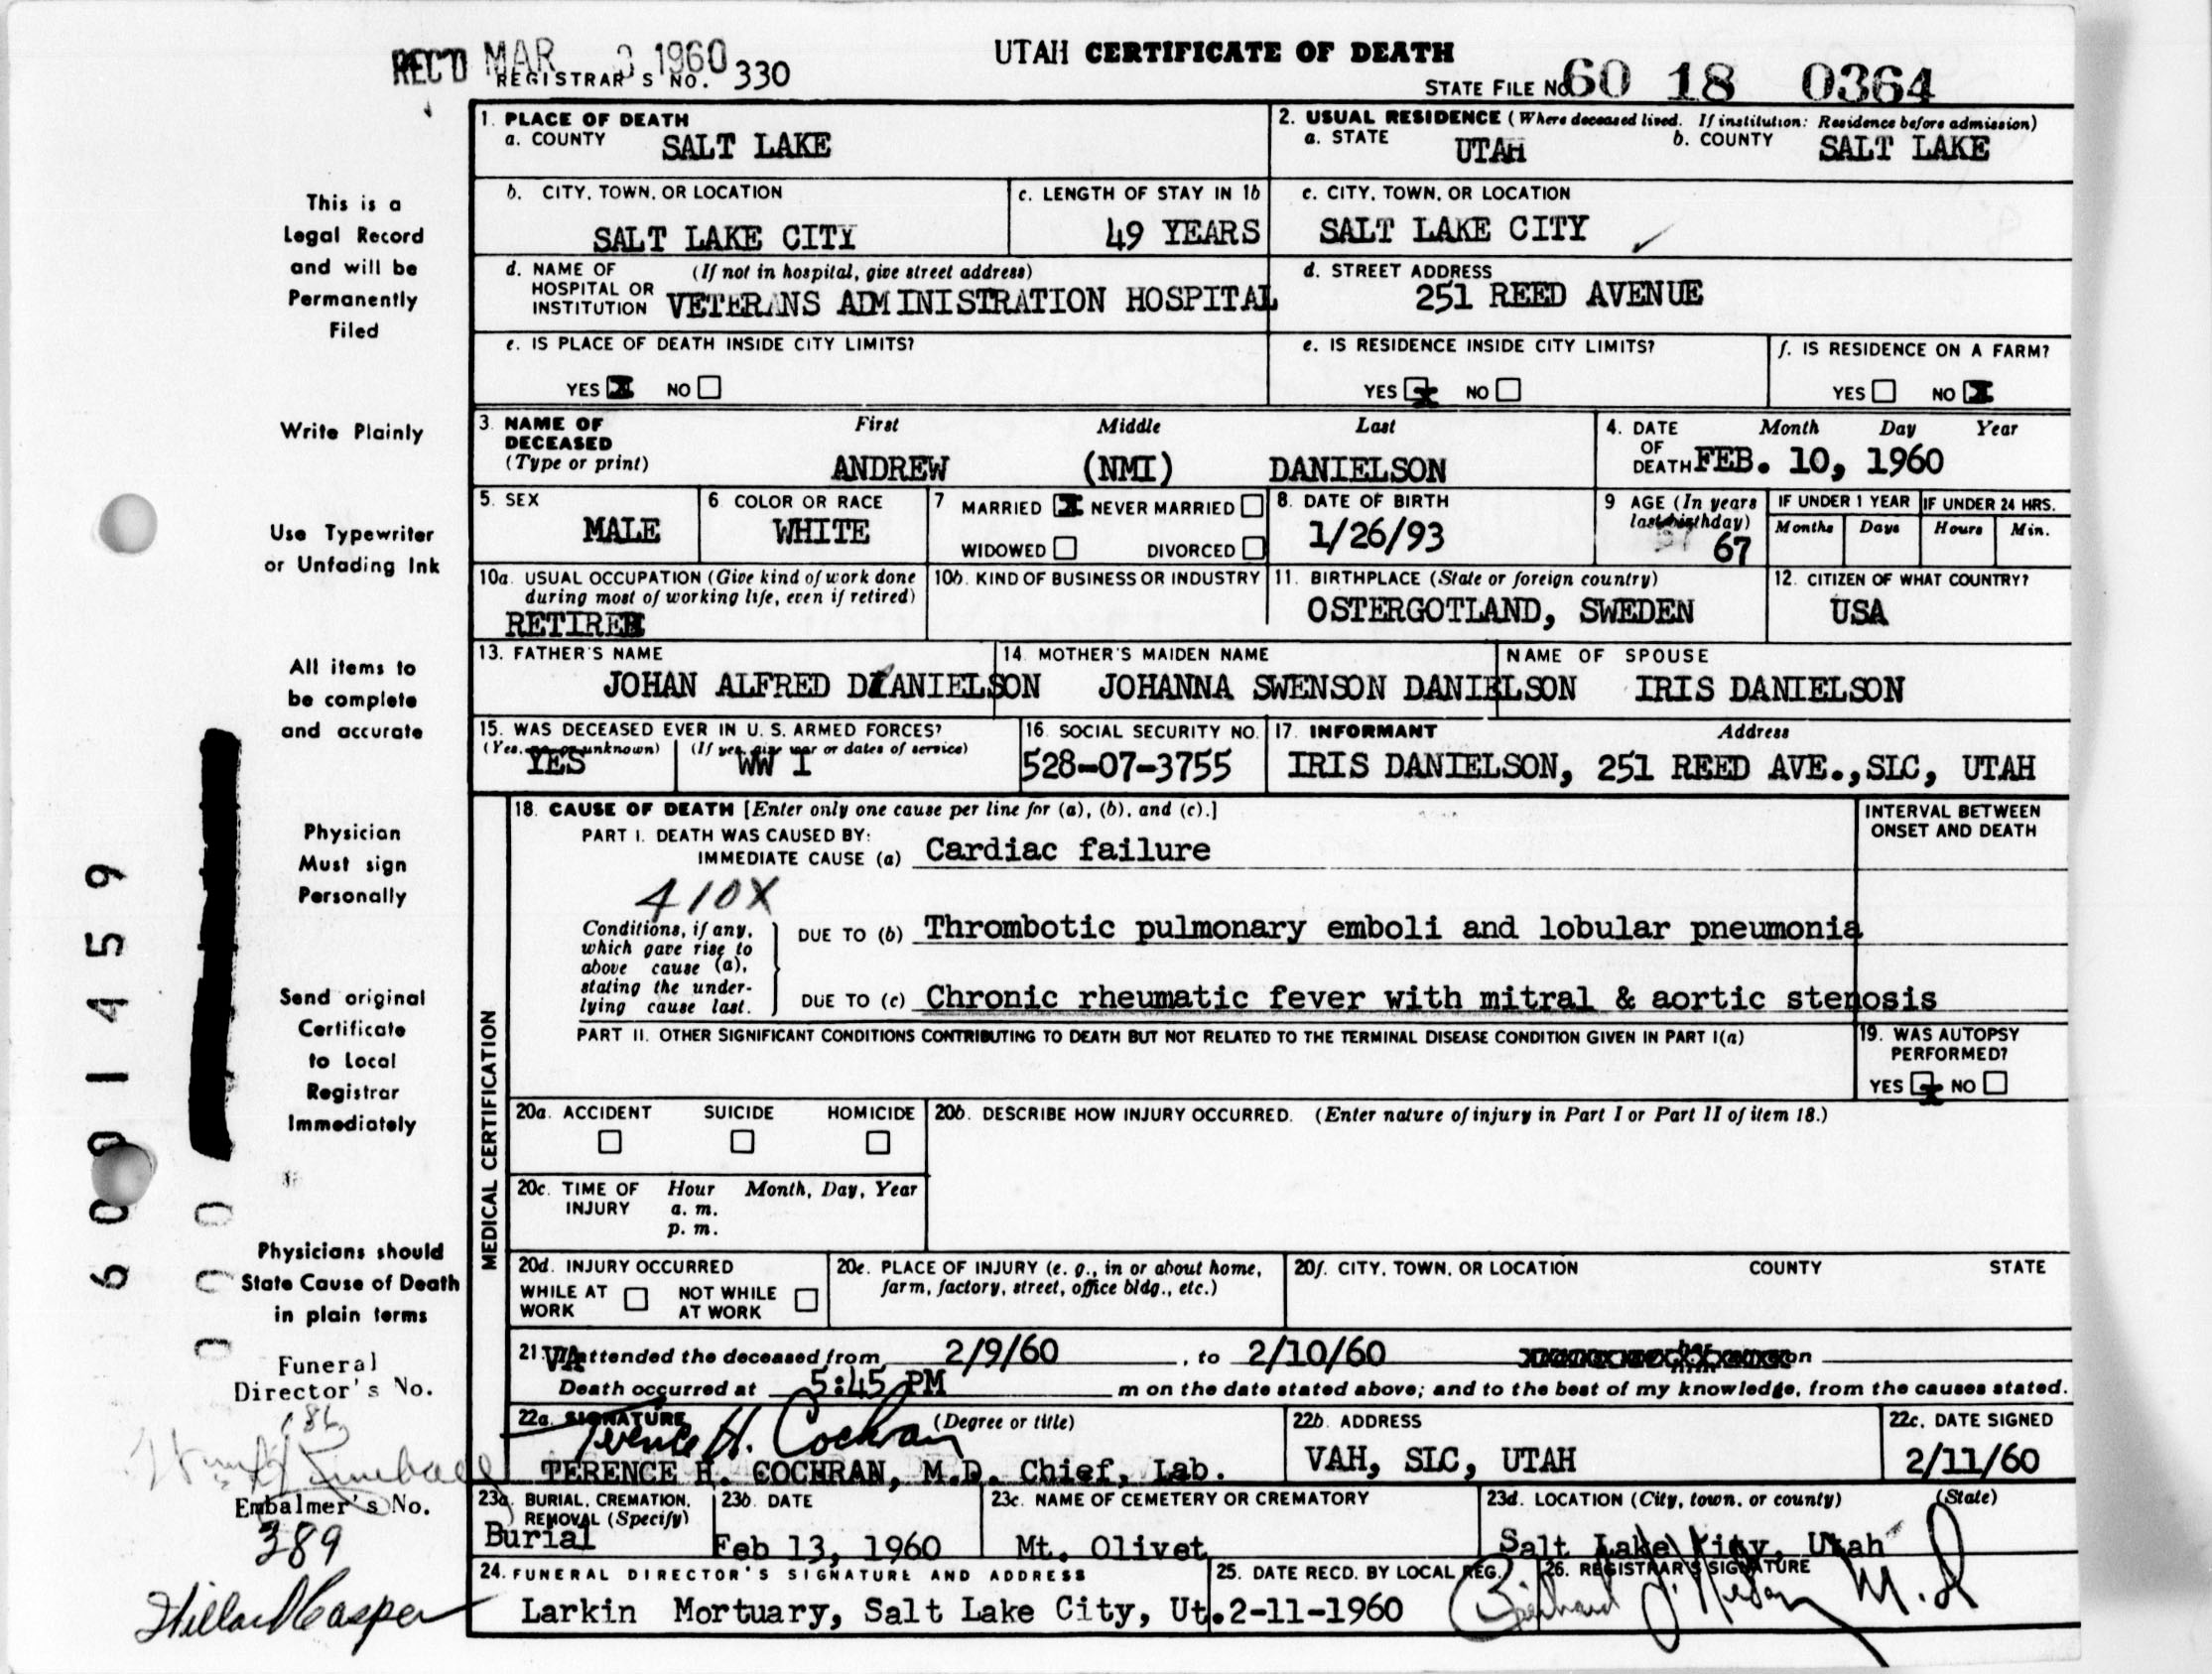 REC'D MAR 3 1960
REGISTRAR'S NO. 330
UTAH CERTIFICATE OF DEATH
STATE FILE NO. 60 18 0364
This is a
Legal Record
and will be
Permanently
Filed
Write Plainly
Use Typewriter
or Unfading Ink
All items to
be complete
and accurate
Physician
Must sign
Personally
Send original
Certificate
to Local
Registrar
Immediately
Physicians should
State Cause of Death
in plain terms
Funeral
Director's No.
186
Embalmer's No.
389
1. PLACE OF DEATH
a. COUNTY SALT LAKE
2. USUAL RESIDENCE (Where deceased lived. If institution: Residence before admission)
a. STATE UTAH b. COUNTY SALT LAKE
b. CITY, TOWN, OR LOCATION
SALT LAKE CITY
c. LENGTH OF STAY IN 1b
49 YEARS
c. CITY, TOWN, OR LOCATION
SALT LAKE CITY
d. NAME OF (If not in hospital, give street address)
HOSPITAL OR
INSTITUTION VETERANS ADMINISTRATION HOSPITAL
d. STREET ADDRESS
251 REED AVENUE
e. IS PLACE OF DEATH INSIDE CITY LIMITS?
YES X NO
e. IS RESIDENCE INSIDE CITY LIMITS?
YES X NO
f. IS RESIDENCE ON A FARM?
YES NO X
3. NAME OF First Middle Last
DECEASED
(Type or print) ANDREW (NMI) DANIELSON
4. DATE Month Day Year
OF
DEATH FEB. 10, 1960
5. SEX
MALE
6 COLOR OR RACE
WHITE
7 MARRIED X NEVER MARRIED
WIDOWED DIVORCED
8. DATE OF BIRTH
1/26/93
9 AGE (In years
last birthday)
67
IF UNDER 1 YEAR
Months Days
IF UNDER 24 HRS.
Hours Min.
10a. USUAL OCCUPATION (Give kind of work done
during most of working life, even if retired)
RETIRED
10b. KIND OF BUSINESS OR INDUSTRY
11. BIRTHPLACE (State or foreign country)
OSTERGOTLAND, SWEDEN
12. CITIZEN OF WHAT COUNTRY?
USA
13. FATHER'S NAME
JOHAN ALFRED DANIELSON
14. MOTHER'S MAIDEN NAME
JOHANNA SWENSON DANIELSON
NAME OF SPOUSE
IRIS DANIELSON
15. WAS DECEASED EVER IN U. S. ARMED FORCES?
(Yes, no, or unknown) (If yes, give war or dates of service)
YES WW I
16. SOCIAL SECURITY NO.
528-07-3755
17. INFORMANT Address
IRIS DANIELSON, 251 REED AVE.,SLC, UTAH
MEDICAL CERTIFICATION
18. CAUSE OF DEATH [Enter only one cause per line for (a), (b), and (c).]
INTERVAL BETWEEN
ONSET AND DEATH
PART I. DEATH WAS CAUSED BY:
IMMEDIATE CAUSE (a) Cardiac failure
410X
Conditions, if any,
which gave rise to
above cause (a),
stating the under-
lying cause last.
DUE TO (b) Thrombotic pulmonary emboli and lobular pneumonia
DUE TO (c) Chronic rheumatic fever with mitral & aortic stenosis
PART II. OTHER SIGNIFICANT CONDITIONS CONTRIBUTING TO DEATH BUT NOT RELATED TO THE TERMINAL DISEASE CONDITION GIVEN IN PART I(a)
19. WAS AUTOPSY
PERFORMED?
YES X NO
20a. ACCIDENT SUICIDE HOMICIDE
20b. DESCRIBE HOW INJURY OCCURRED. (Enter nature of injury in Part I or Part II of item 18.)
20c. TIME OF Hour Month, Day, Year
INJURY a. m.
p. m.
20d. INJURY OCCURRED
WHILE AT NOT WHILE
WORK AT WORK
20e. PLACE OF INJURY (e. g., in or about home,
farm, factory, street, office bldg., etc.)
20f. CITY, TOWN, OR LOCATION COUNTY STATE
21. VA attended the deceased from 2/9/60, to 2/10/60 on
Death occurred at 5:45 PM m on the date stated above; and to the best of my knowledge, from the causes stated.
22a. SIGNATURE (Degree or title)
Terence H. Cochran
TERENCE H. COCHRAN, M.D. Chief, Lab.
22b. ADDRESS
VAH, SLC, UTAH
22c. DATE SIGNED
2/11/60
23a. BURIAL, CREMATION,
REMOVAL (Specify)
Burial
23b. DATE
Feb 13, 1960
23c. NAME OF CEMETERY OR CREMATORY
Mt. Olivet
23d. LOCATION (City, town, or county) (State)
Salt Lake City, Utah
24. FUNERAL DIRECTOR'S SIGNATURE AND ADDRESS
Larkin Mortuary, Salt Lake City, Ut.
25. DATE RECD. BY LOCAL REG.
2-11-1960
26. REGISTRAR'S SIGNATURE
M.D